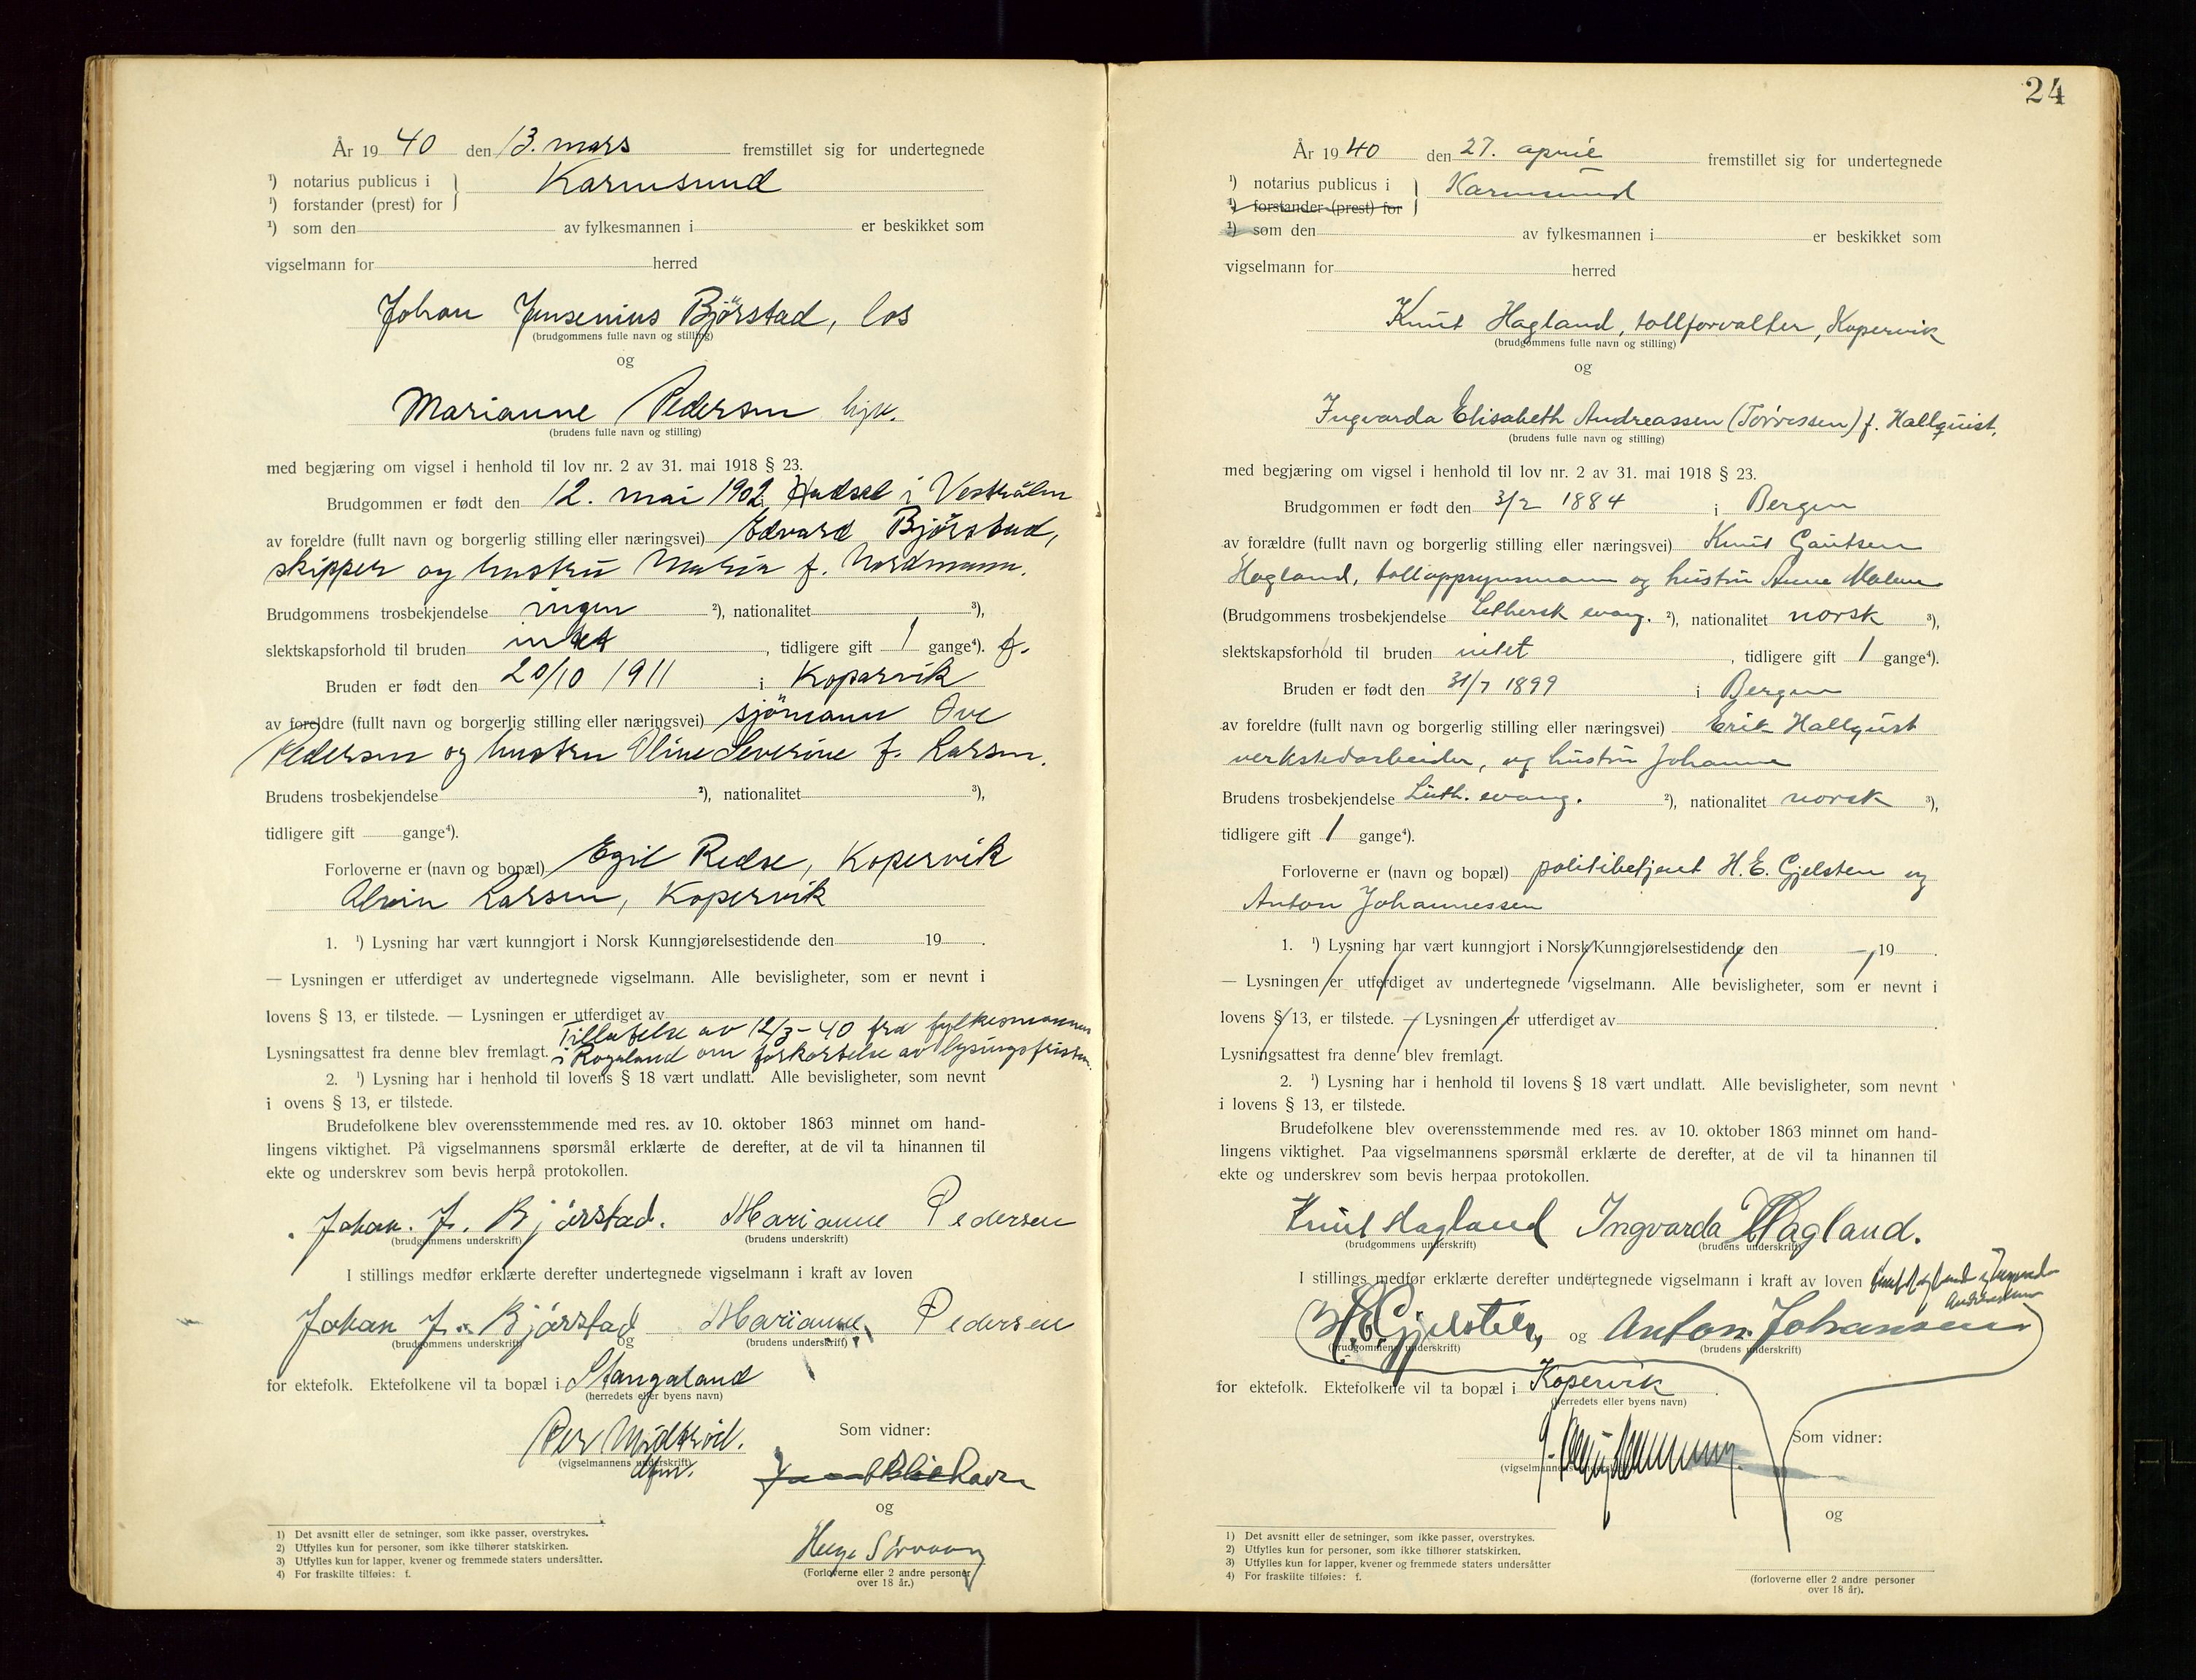 År 1940 den 13. mars fremstillet sig for undertegnede
¹) notarius publicus i } Karmsund
¹) forstander (prest) for
¹) som den av fylkesmannen i er beskikket som
vigselmann for herred
Johan Jensenius Bjørstad, los
(brudgommens fulle navn og stilling)
og
Marianne Pedersen
(brudens fulle navn og stilling)
med begjæring om vigsel i henhold til lov nr. 2 av 31. mai 1918 § 23.
Brudgommen er født den 12. mai 1902, Hadsel i Vesterålen
av foreldre (fullt navn og borgerlig stilling eller næringsvei) Edvard Bjørstad,
skipper og hustru Maria f. Nordmann.
Brudgommens trosbekjendelse ingen ²), nationalitet ³),
slektskapsforhold til bruden intet , tidligere gift 1 gange⁴). f.
Bruden er født den 20/10 1911 i Kopervik
av foreldre (fullt navn og borgerlig stilling eller næringsvei) sjömann Ove
Pedersen og hustru Oline Severine f. Larsen.
Brudens trosbekjendelse ²), nationalitet ³),
tidligere gift gange⁴).
Forloverne er (navn og bopæl) Egil Redse, Kopervik
Alvin Larsen, Kopervik
1. ¹) Lysning har vært kunngjort i Norsk Kunngjørelsestidende den 19 .
— Lysningen er utferdiget av undertegnede vigselmann. Alle bevisligheter, som er nevnt i
lovens § 13, er tilstede. — Lysningen er utferdiget av
Tillatelse av 12/3-40 fra fylkesmannen
Lysningsattest fra denne blev fremlagt. i Rogaland om forkortelse av lysingsfristen.
2. ¹) Lysning har i henhold til lovens § 18 vært undlatt. Alle bevisligheter, som nevnt
i ovens § 13, er tilstede.
Brudefolkene blev overensstemmende med res. av 10. oktober 1863 minnet om hand-
lingens viktighet. På vigselmannens spørsmål erklærte de derefter, at de vil ta hinannen til
ekte og underskrev som bevis herpå protokollen.
Johan. J. Bjørstad. Marianne Pedersen
(brudgommens underskrift) (brudens underskrift)
I stillings medfør erklærte derefter undertegnede vigselmann i kraft av loven
Johan J. Bjørstad Marianne Pedersen
(brudgommens underskrift) og (brudens underskrift)
for ektefolk. Ektefolkene vil ta bopæl i Stangaland
(herredets eller byens navn)
Per
(vigselmannens underskrift)
Som vidner:
og
Helge
(Forloverne eller 2 andre personer
over 18 år.)
1) Det avsnitt eller de setninger, som ikke passer, overstrykes.
2) Utfylles kun for personer, som ikke tilhører statskirken.
3) Utfylles kun for lapper, kvener og fremmede staters undersåtter.
4) For fraskilte tilføies: f.
24
År 1940 den 27. april fremstillet sig for undertegnede
¹) notarius publicus i } Karmsund
¹) forstander (prest) for
¹) som den av fylkesmannen i er beskikket som
vigselmann for herred
Knut Hagland, tollforvalter, Kopervik
(brudgommens fulle navn og stilling)
og
Ingvarda Elisabeth Andreassen (Torvessen) f. Hallquist,
(brudens fulle navn og stilling)
med begjæring om vigsel i henhold til lov nr. 2 av 31. mai 1918 § 23.
Brudgommen er født den 3/2 1884 i Bergen
av forældre (fullt navn og borgerlig stilling eller næringsvei) Knut Gautsen
Hagland, tolloppsynsmann og hustru Anne Malene
(Brudgommens trosbekjendelse Luthersk evang. ²), nationalitet norsk ³),
slektskapsforhold til bruden intet , tidligere gift 1 gange⁴).
Bruden er født den 31/7 1899 i Bergen
av foreldre (fullt navn og borgerlig stilling eller næringsvei) Erik Hallquist
verkstedarbeider, og hustru Johanne
Brudens trosbekjendelse Luth. evang. ²), nationalitet norsk ³),
tidligere gift 1 gange⁴).
Forloverne er (navn og bopæl) politibetjent H. E. Gjelsten og
Anton Johannessen
1. ¹) Lysning har vært kunngjort i Norsk Kunngjørelsestidende den 19 .
— Lysningen er utferdiget av undertegnede vigselmann. Alle bevisligheter, som er nevnt i
lovens § 13, er tilstede. — Lysningen er utferdiget av .
Lysningsattest fra denne blev fremlagt.
2. ¹) Lysning har i henhold til lovens § 18 vært undlatt. Alle bevisligheter, som nevnt
i lovens § 13, er tilstede.
Brudefolkene blev overensstemmende med res. av 10. oktober 1863 minnet om hand-
lingens viktighet. Paa vigselmannens spørsmål erklærte de derefter, at de vil ta hinannen til
ekte og underskrev som bevis herpaa protokollen.
Knut Hagland Ingvarda Hagland.
(brudgommens underskrift) (brudens underskrift)
I stillings medfør erklærte derefter undertegnede vigselmann i kraft av loven Knut Hagland og Ingvarda
Andreassen
H.E. Gjelsten, og Anton Johansen
(brudgommens underskrift) (brudens underskrift)
for ektefolk. Ektefolkene vil ta bopæl i Kopervik .
(herredets eller byens navn)
Som vidner:
og
(forloverne eller 2 andre personer
over 18 år).
1) Det avsnitt eller de setninger, som ikke passer, overstrykes.
2) Utfylles kun for personer, som ikke tilhører statskirken.
3) Utfylles kun for lapper, kvener og fremmede staters undersåtter
4) For fraskilte tilføies: f.